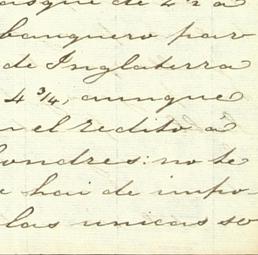 asque de 4 ½ a
banquero par
de Inglaterra
4 ¾, aunque
el redito à
ondres: no te
e hai de impo-
las unicas so